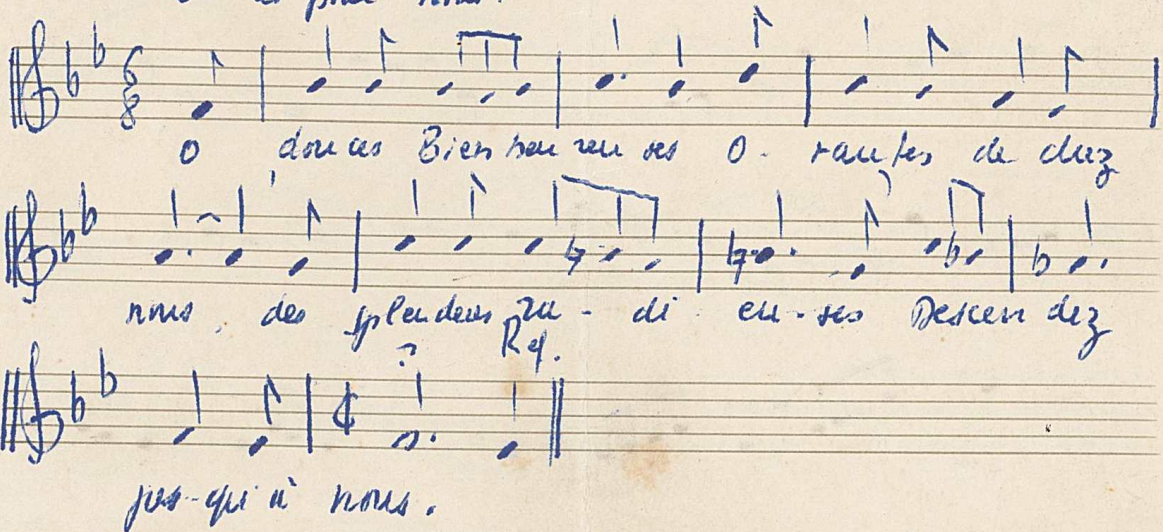 pour nous.
6 8
O douces Bien heu reu ses O- rantes de chez
nous, des splendeurs ra - di eu - ses Descen dez
? Ref.
jus-qu'à nous.